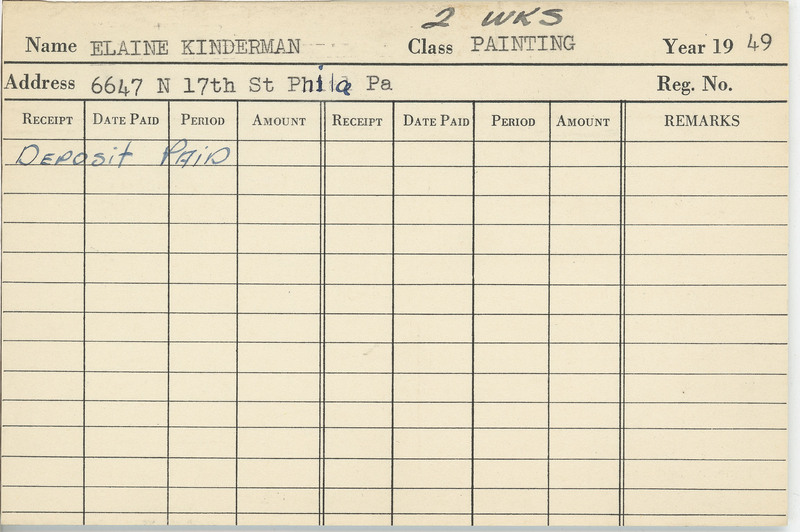 2 WKS
Name ELAINE KINDERMAN Class PAINTING Year 19 49
Address 6647 N 17th St Phila Pa Reg. No.
RECEIPT DATE PAID PERIOD AMOUNT RECEIPT DATE PAID PERIOD AMOUNT REMARKS
DEPOSIT PAID